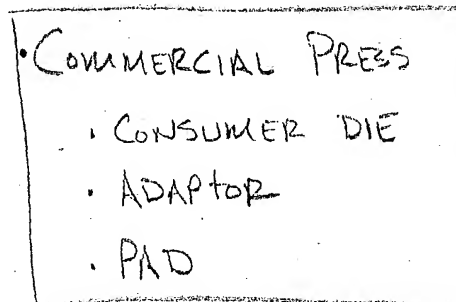 · COMMERCIAL PRESS
· CONSUMER DIE
· ADAPTOR
· PAD